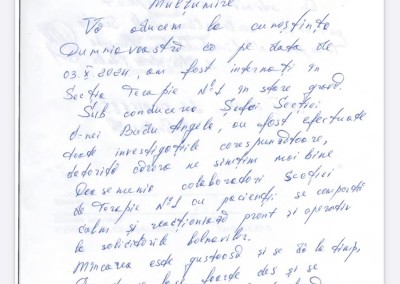 Mulțumire
Vă aducem la cunoștință
Dumneavoastră că pe data de
03.X.2024, am fost internați în
Secția Terapie №1 în stare gravă.
Sub conducerea Șefei Secției
d-nei Buzdu Angela, au fost efectuate
toate investigațiile corespunzătoare,
datorită cărora ne simțim mai bine
Deasemenea colaboratorii Secției
de Terapie №1 cu pacienții se comportă
calm și reacționează prompt și operativ
la solicitările bolnavilor.
Mîncarea este gustoasă și se dă la timp,
foarte des și se